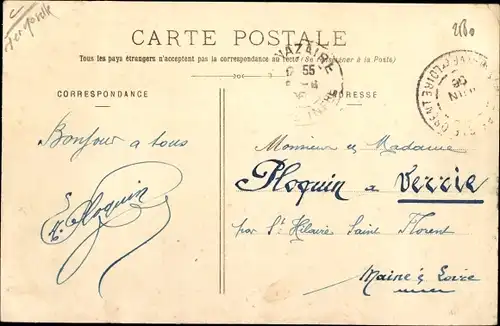 2180
CARTE POSTALE
Tous les pays étrangers n'acceptent pas la correspondance au recto (Se renseigner à la Poste)
NAZAIRE
55
CORRESPONDANCE
ADRESSE
LOIRE INF
JUIN
06
Bonjour a tous
Ploquin
Monsieur et Madame
Ploquin a Verrie
par St Hilaire Saint Florent
Maine & Loire